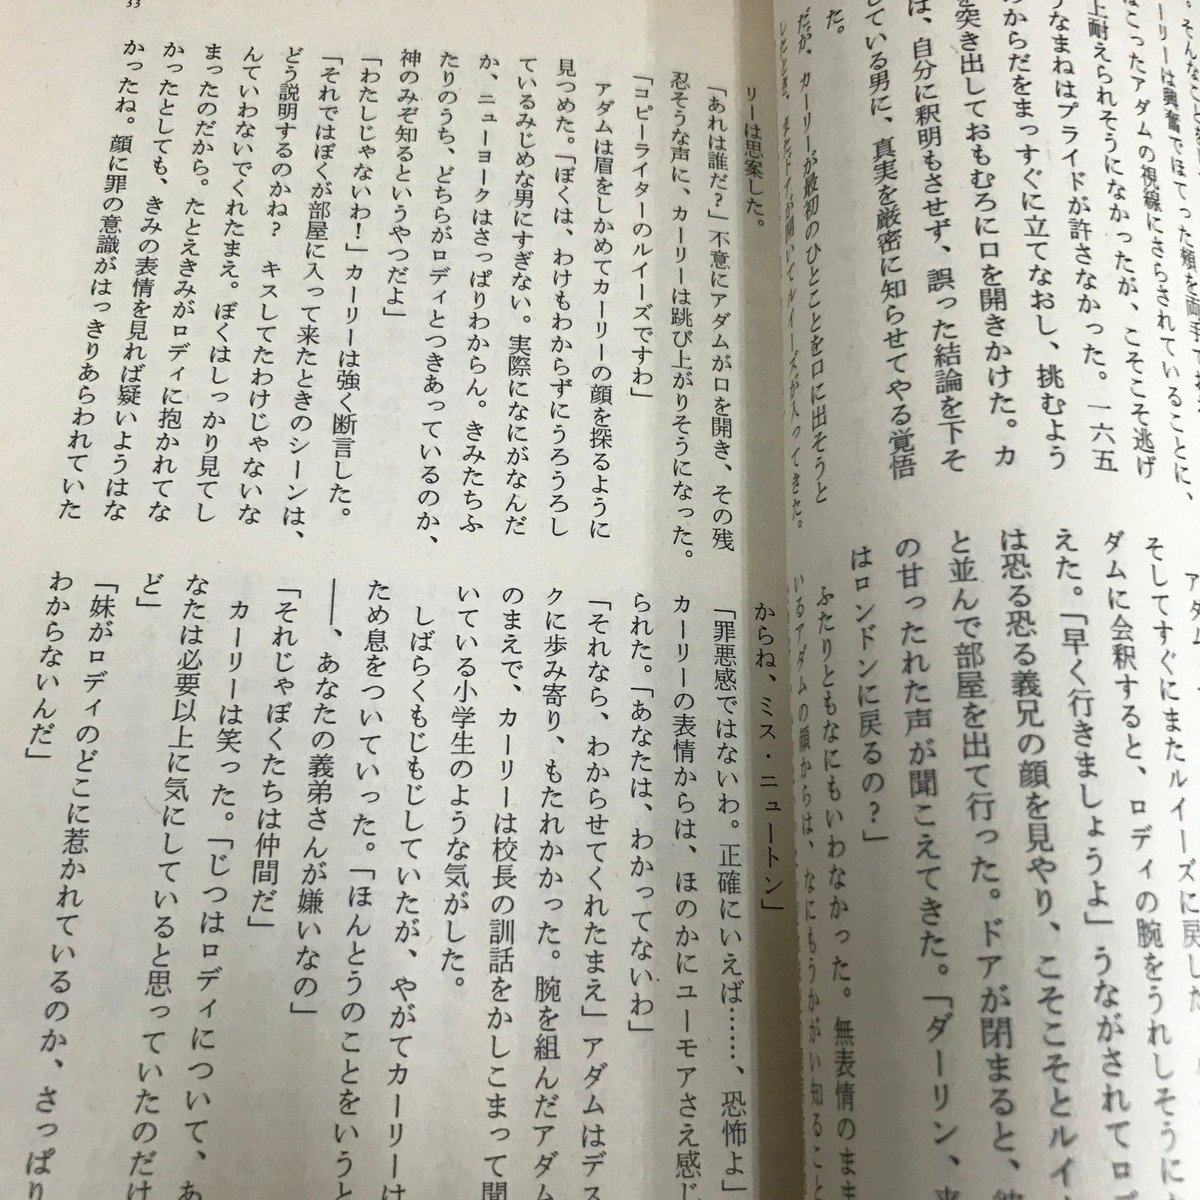 は、自分に釈明もさせず、誤った結論を下そ
している男に、真実を厳密に知らせてやる覚悟
た。
だが、カーリーが最初のひとことを口に出そうと
したとき、またドアが開いてルイーズが入ってきた。
アダム
そしてすぐにまたルイーズに戻した
ダムに会釈すると、ロディの腕をうれしそうに
えた。「早く行きましょうよ」うながされてロ
は恐る恐る義兄の顔を見やり、こそこそとルイ
と並んで部屋を出て行った。ドアが閉まると、
の甘ったれた声が聞こえてきた。「ダーリン、
はロンドンに戻るの？」
ふたりともなにもいわなかった。無表情のまま
いるアダムの顔からは、なにもうかがい知ること
リーは思案した。
「あれは誰だ？」不意にアダムが口を開き、その残
忍そうな声に、カーリーは跳び上がりそうになった。
「コピーライターのルイーズですわ」
アダムは眉をしかめてカーリーの顔を探るように
見つめた。「ぼくは、わけもわからずにうろうろし
ているみじめな男にすぎない。実際になにがなんだ
か、ニューヨークはさっぱりわからん。きみたちふ
たりのうち、どちらがロディとつきあっているのか、
神のみぞ知るというやつだよ」
「わたしじゃないわ！」カーリーは強く断言した。
「それではぼくが部屋に入って来たときのシーンは、
どう説明するのかね？　キスしてたわけじゃないな
んていわないでくれたまえ。ぼくはしっかり見てし
まったのだから。たとえきみがロディに抱かれてな
かったとしても、きみの表情を見れば疑いようはな
かったね。顔に罪の意識がはっきりあらわれていた
からね、ミス・ニュートン」
「罪悪感ではないわ。正確にいえば……、恐怖よ」
カーリーの表情からは、ほのかにユーモアさえ感じ
られた。「あなたは、わかってないわ」
「それなら、わからせてくれたまえ」アダムはデス
クに歩み寄り、もたれかかった。腕を組んだアダム
のまえで、カーリーは校長の訓話をかしこまって聞
いている小学生のような気がした。
しばらくもじもじしていたが、やがてカーリーは
ため息をついていった。「ほんとうのことをいうと
――、あなたの義弟さんが嫌いなの」
「それじゃぼくたちは仲間だ」
カーリーは笑った。「じつはロディについて、あ
なたは必要以上に気にしていると思っていたのだけ
ど」
「妹がロディのどこに惹かれているのか、さっぱり
わからないんだ」
33